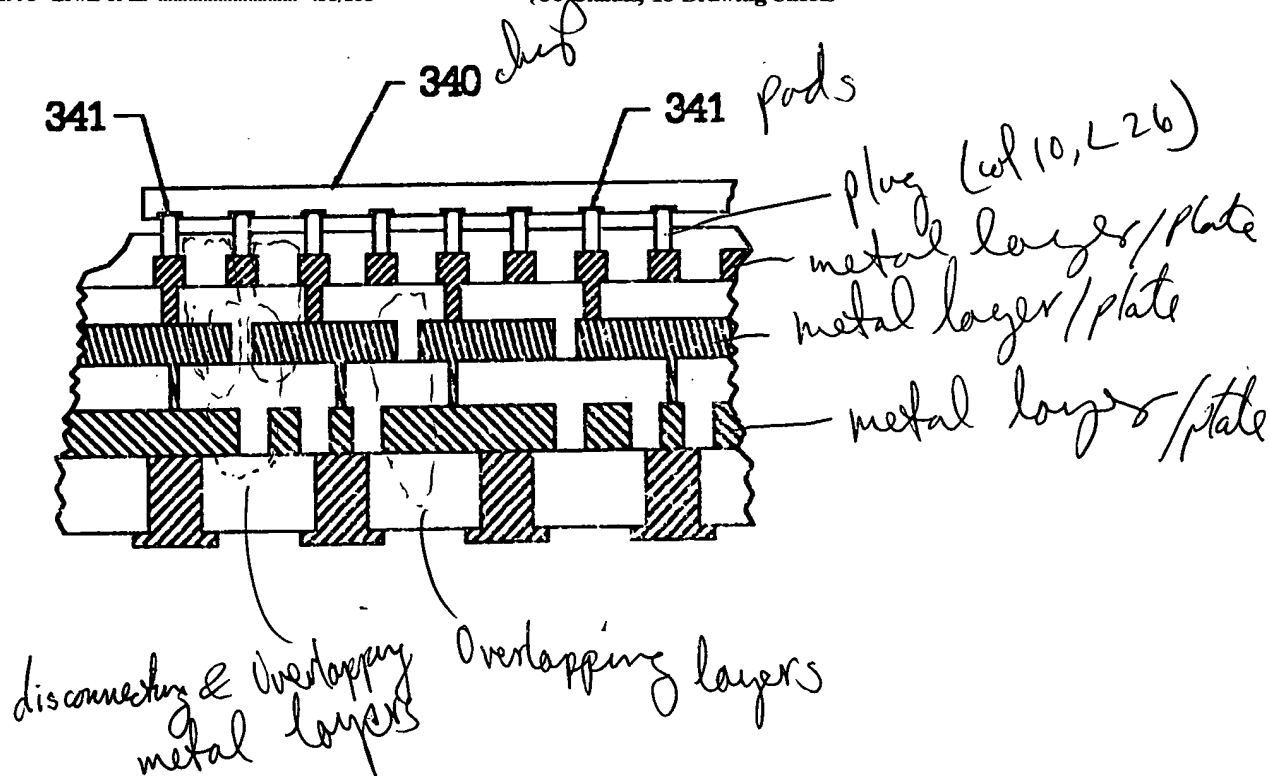 340 chip
341
341 pads
plug (col 10, L 26)
metal layer/plate
metal layer/plate
metal layer/plate
disconnecting & Overlapping
metal layers
Overlapping layers